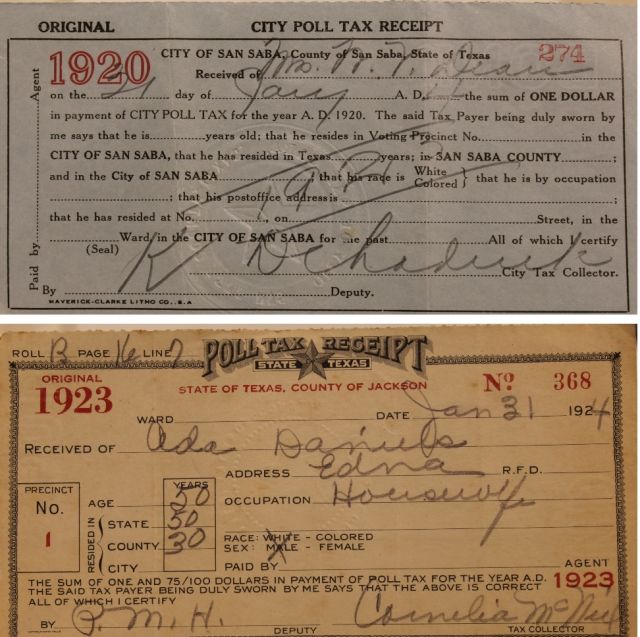 ORIGINAL CITY POLL TAX RECEIPT
1920 CITY OF SAN SABA, County of San Saba, State of Texas 274
Agent
Received of Mrs. N. T. Dean
on the 31 day of Jany A. D. the sum of ONE DOLLAR
in payment of CITY POLL TAX for the year A. D. 1920. The said Tax Payer being duly sworn by
me says that he is years old; that he resides in Voting Precinct No. in the
CITY OF SAN SABA, that he has resided in Texas years; in SAN SABA COUNTY ;
and in the City of SAN SABA ; that his race is White Colored } that he is by occupation
; that his postoffice address is ;
that he has resided at No. , on Street, in the
Ward in the CITY OF SAN SABA for the past All of which I certify
(Seal)
City Tax Collector.
Paid by
By K Deputy.
MAVERICK-CLARKE LITHO CO., S.A
ROLL B PAGE 16 LINE 7 POLL TAX RECEIPT
STATE TEXAS
ORIGINAL STATE OF TEXAS, COUNTY OF JACKSON No 368
1923
WARD DATE Jan 31 1924
RECEIVED OF Ada Daniels
ADDRESS Edna R.F.D.
PRECINCT No. 1
RESIDED IN
YEARS
AGE 50 OCCUPATION Housewife
STATE 50
COUNTY 30 RACE: WHITE - COLORED
SEX: MALE - FEMALE
CITY PAID BY AGENT
THE SUM OF ONE AND 75/100 DOLLARS IN PAYMENT OF POLL TAX FOR THE YEAR A.D. 1923
THE SAID TAX PAYER BEING DULY SWORN BY ME SAYS THAT THE ABOVE IS CORRECT
ALL OF WHICH I CERTIFY
BY P. M. H. DEPUTY Cornelia TAX COLLECTOR